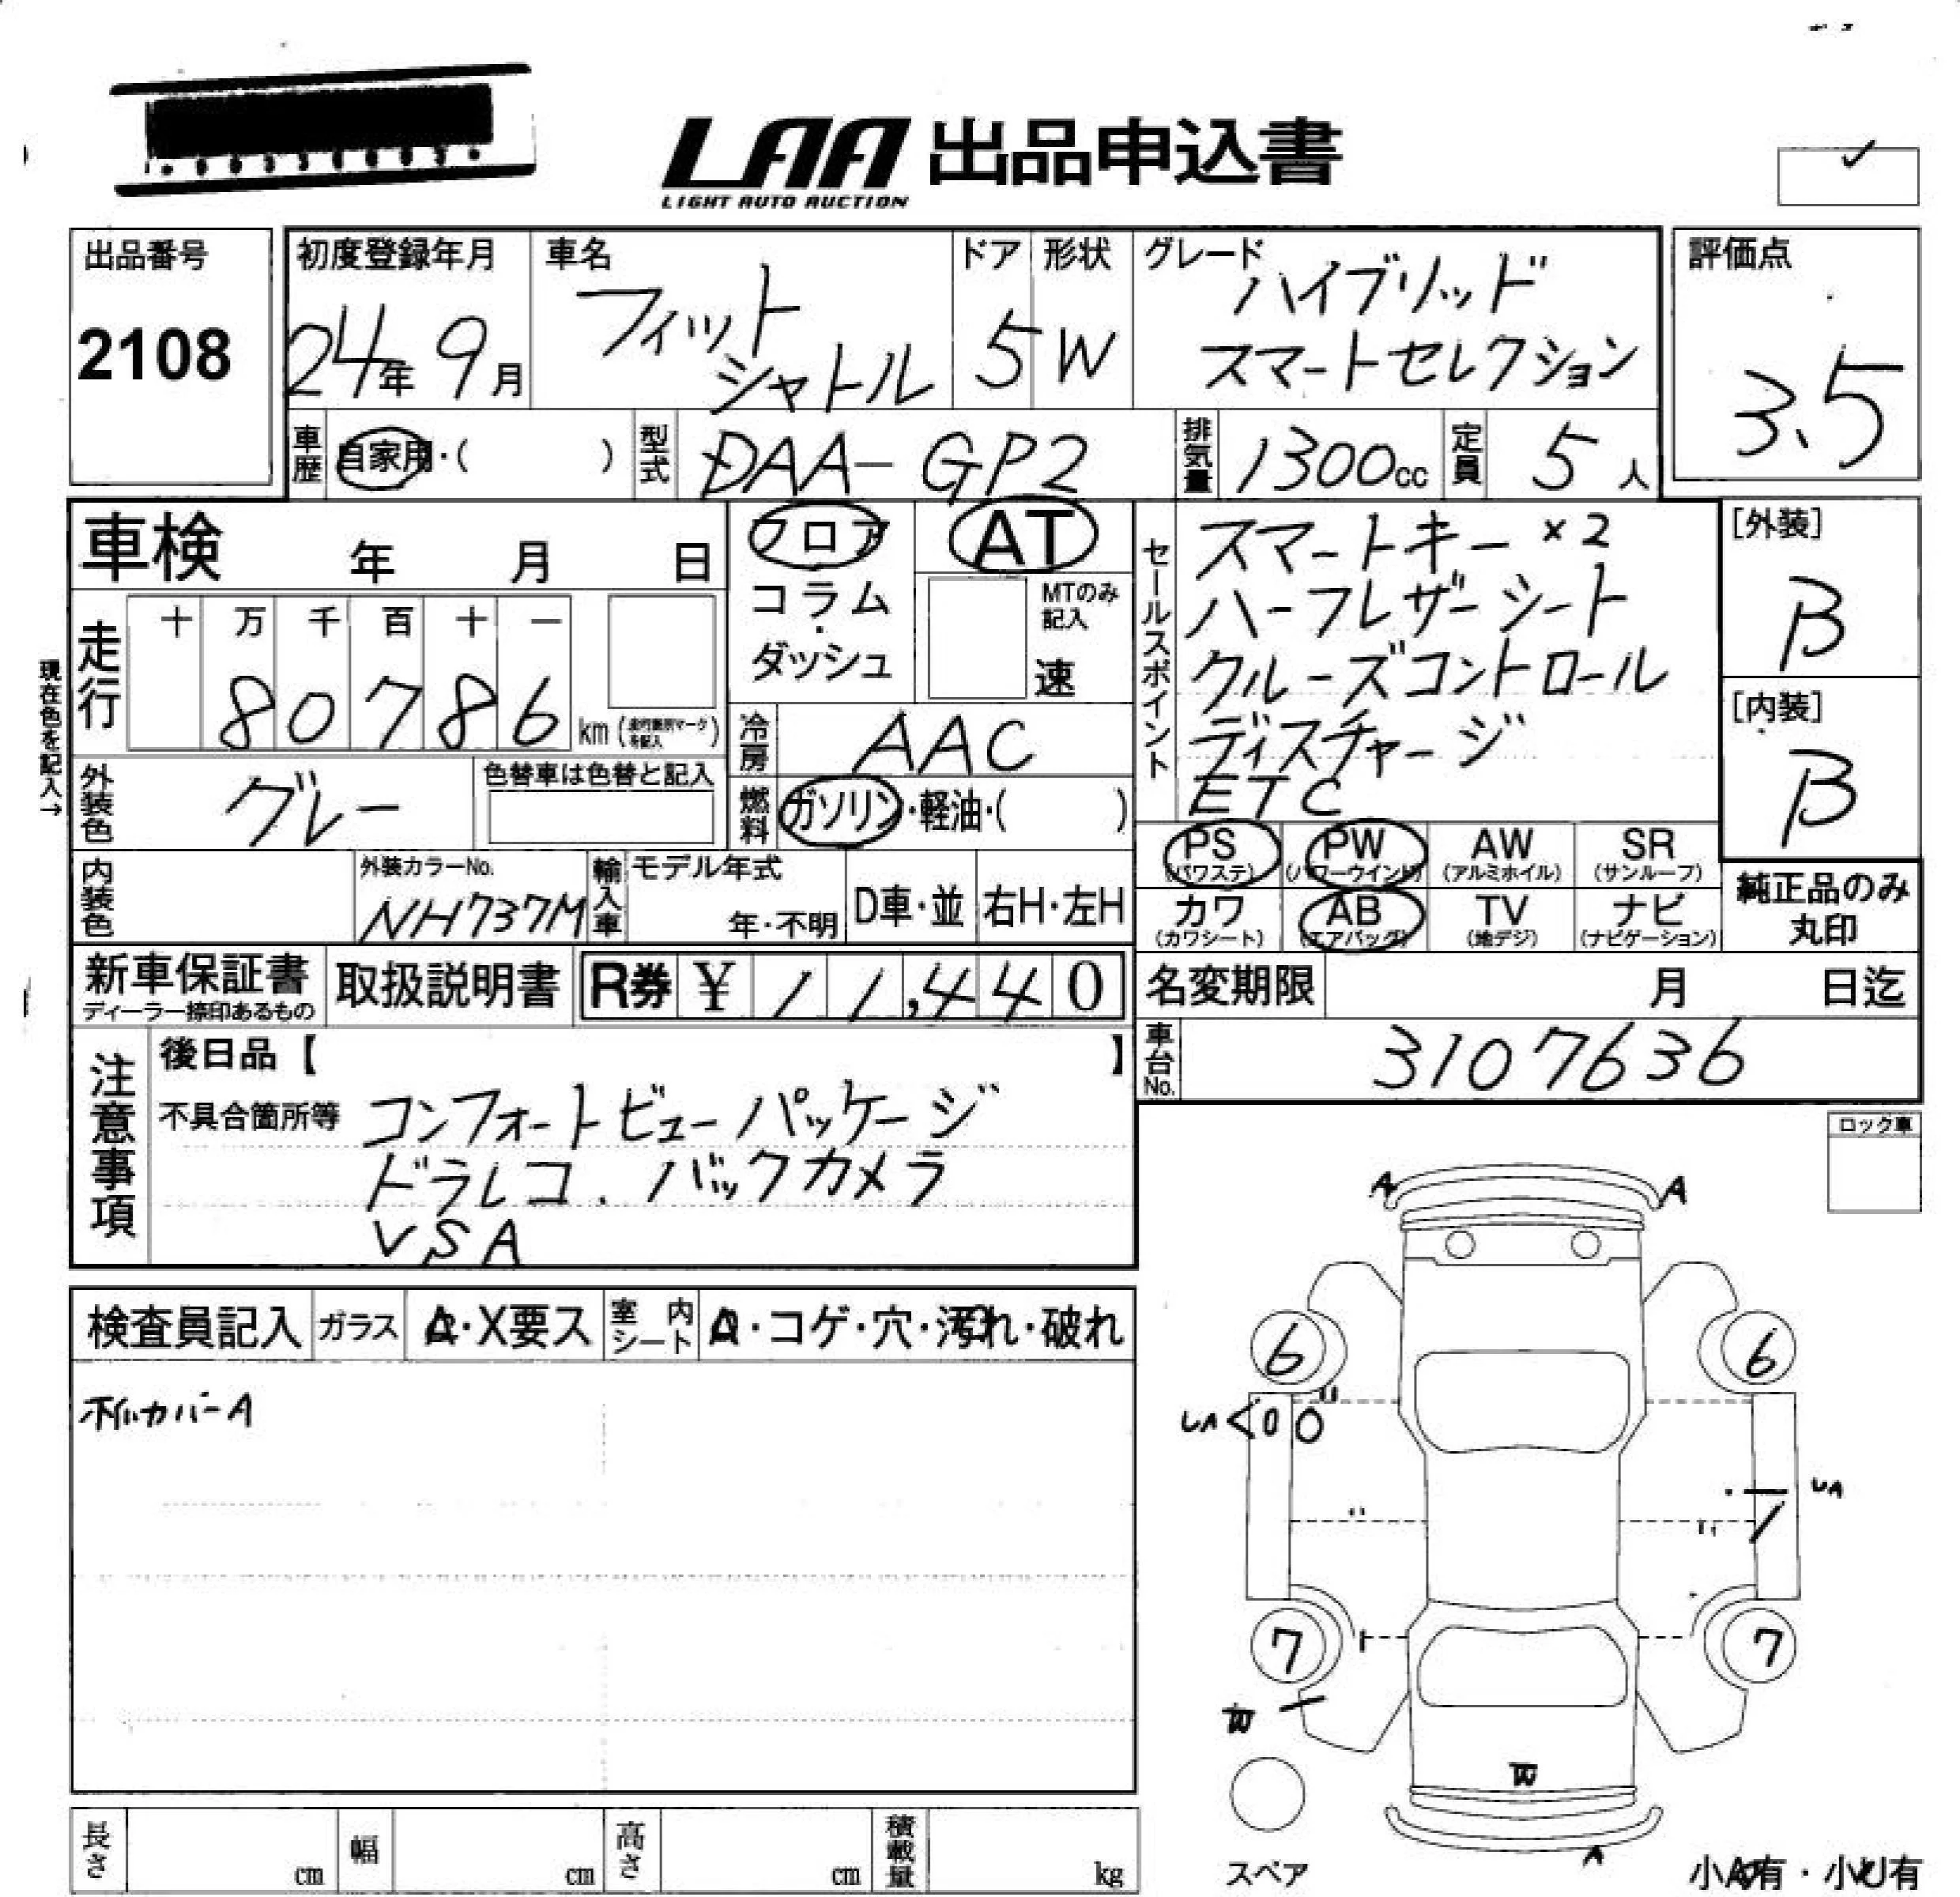 LAA 出品申込書
LIGHT AUTO AUCTION
出品番号
2108
初度登録年月
24年 9月
車名
フィット
シャトル
ドア
5
形状
W
グレード
ハイブリッド
スマートセレクション
評価点
3.5
車歴
自家用・( )
型式
DAA-GP2
排気量
1300cc
定員
5人
車検 年 月 日
フロア
コラム
・
ダッシュ
AT
MTのみ
記入
速
セールスポイント
スマートキー ×2
ハーフレザーシート
クルーズコントロール
ディスチャージ
ETC
[外装]
B
[内装]
B
現在色を記入→
走行
十 万 千 百 十 一
80786
km
冷房
AAC
外装色
グレー
色替車は色替と記入
燃料
ガソリン・軽油・( )
PS
(パワステ)
PW
(パワーウインド)
AW
(アルミホイル)
SR
(サンルーフ)
内装色
外装カラーNo.
NH737M
輸入車
モデル年式
年・不明
D車・並
右H・左H
カワ
(カワシート)
AB
(エアバッグ)
TV
(地デジ)
ナビ
(ナビゲーション)
純正品のみ
丸印
新車保証書
ディーラー捺印あるもの
取扱説明書
R券 ¥ 11,440
名変期限 月 日迄
車台No.
3107636
注意事項
後日品【 】
不具合箇所等
コンフォートビューパッケージ
ドラレコ. バックカメラ
VSA
ロック車
検査員記入
ガラス
A・X要ス
室内
シート
・コゲ・穴・汚れ・破れ
ホイルカバーA
A
A
6
6
UA
UA
7
7
W
W
A
スペア
長さ cm
幅 cm
高さ cm
積載量 kg
小A有・小U有